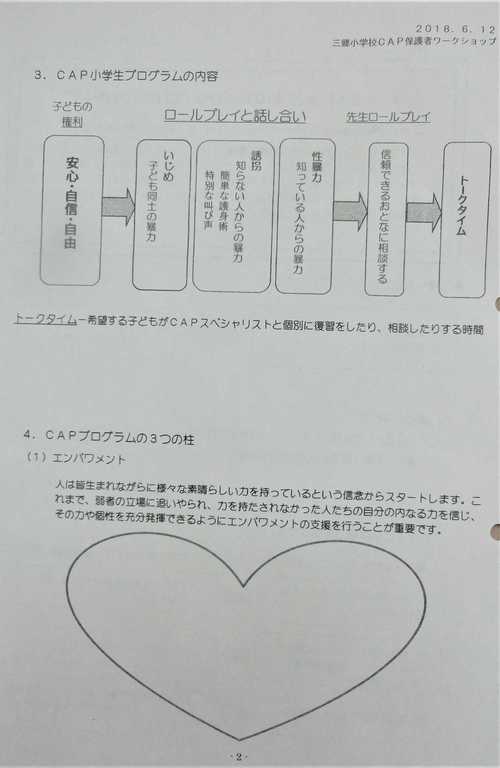 2018．6．12
三郷小学校CAP保護者ワークショップ
3．CAP小学生プログラムの内容
子どもの
権利
ロールプレイと話し合い
先生ロールプレイ
安心・自信・自由
いじめ
子ども同士の暴力
誘拐
知らない人からの暴力
簡単な護身術
特別な叫び声
性暴力
知っている人からの暴力
信頼できるおとなに相談する
トークタイム
トークタイム－希望する子どもがCAPスペシャリストと個別に復習をしたり、相談したりする時間
4．CAPプログラムの3つの柱
（1）エンパワメント
人は皆生まれながらに様々な素晴らしい力を持っているという信念からスタートします。こ
れまで、弱者の立場に追いやられ、力を持たされなかった人たちの自分の内なる力を信じ、
その力や個性を充分発揮できるようにエンパワメントの支援を行うことが重要です。
- 2 -